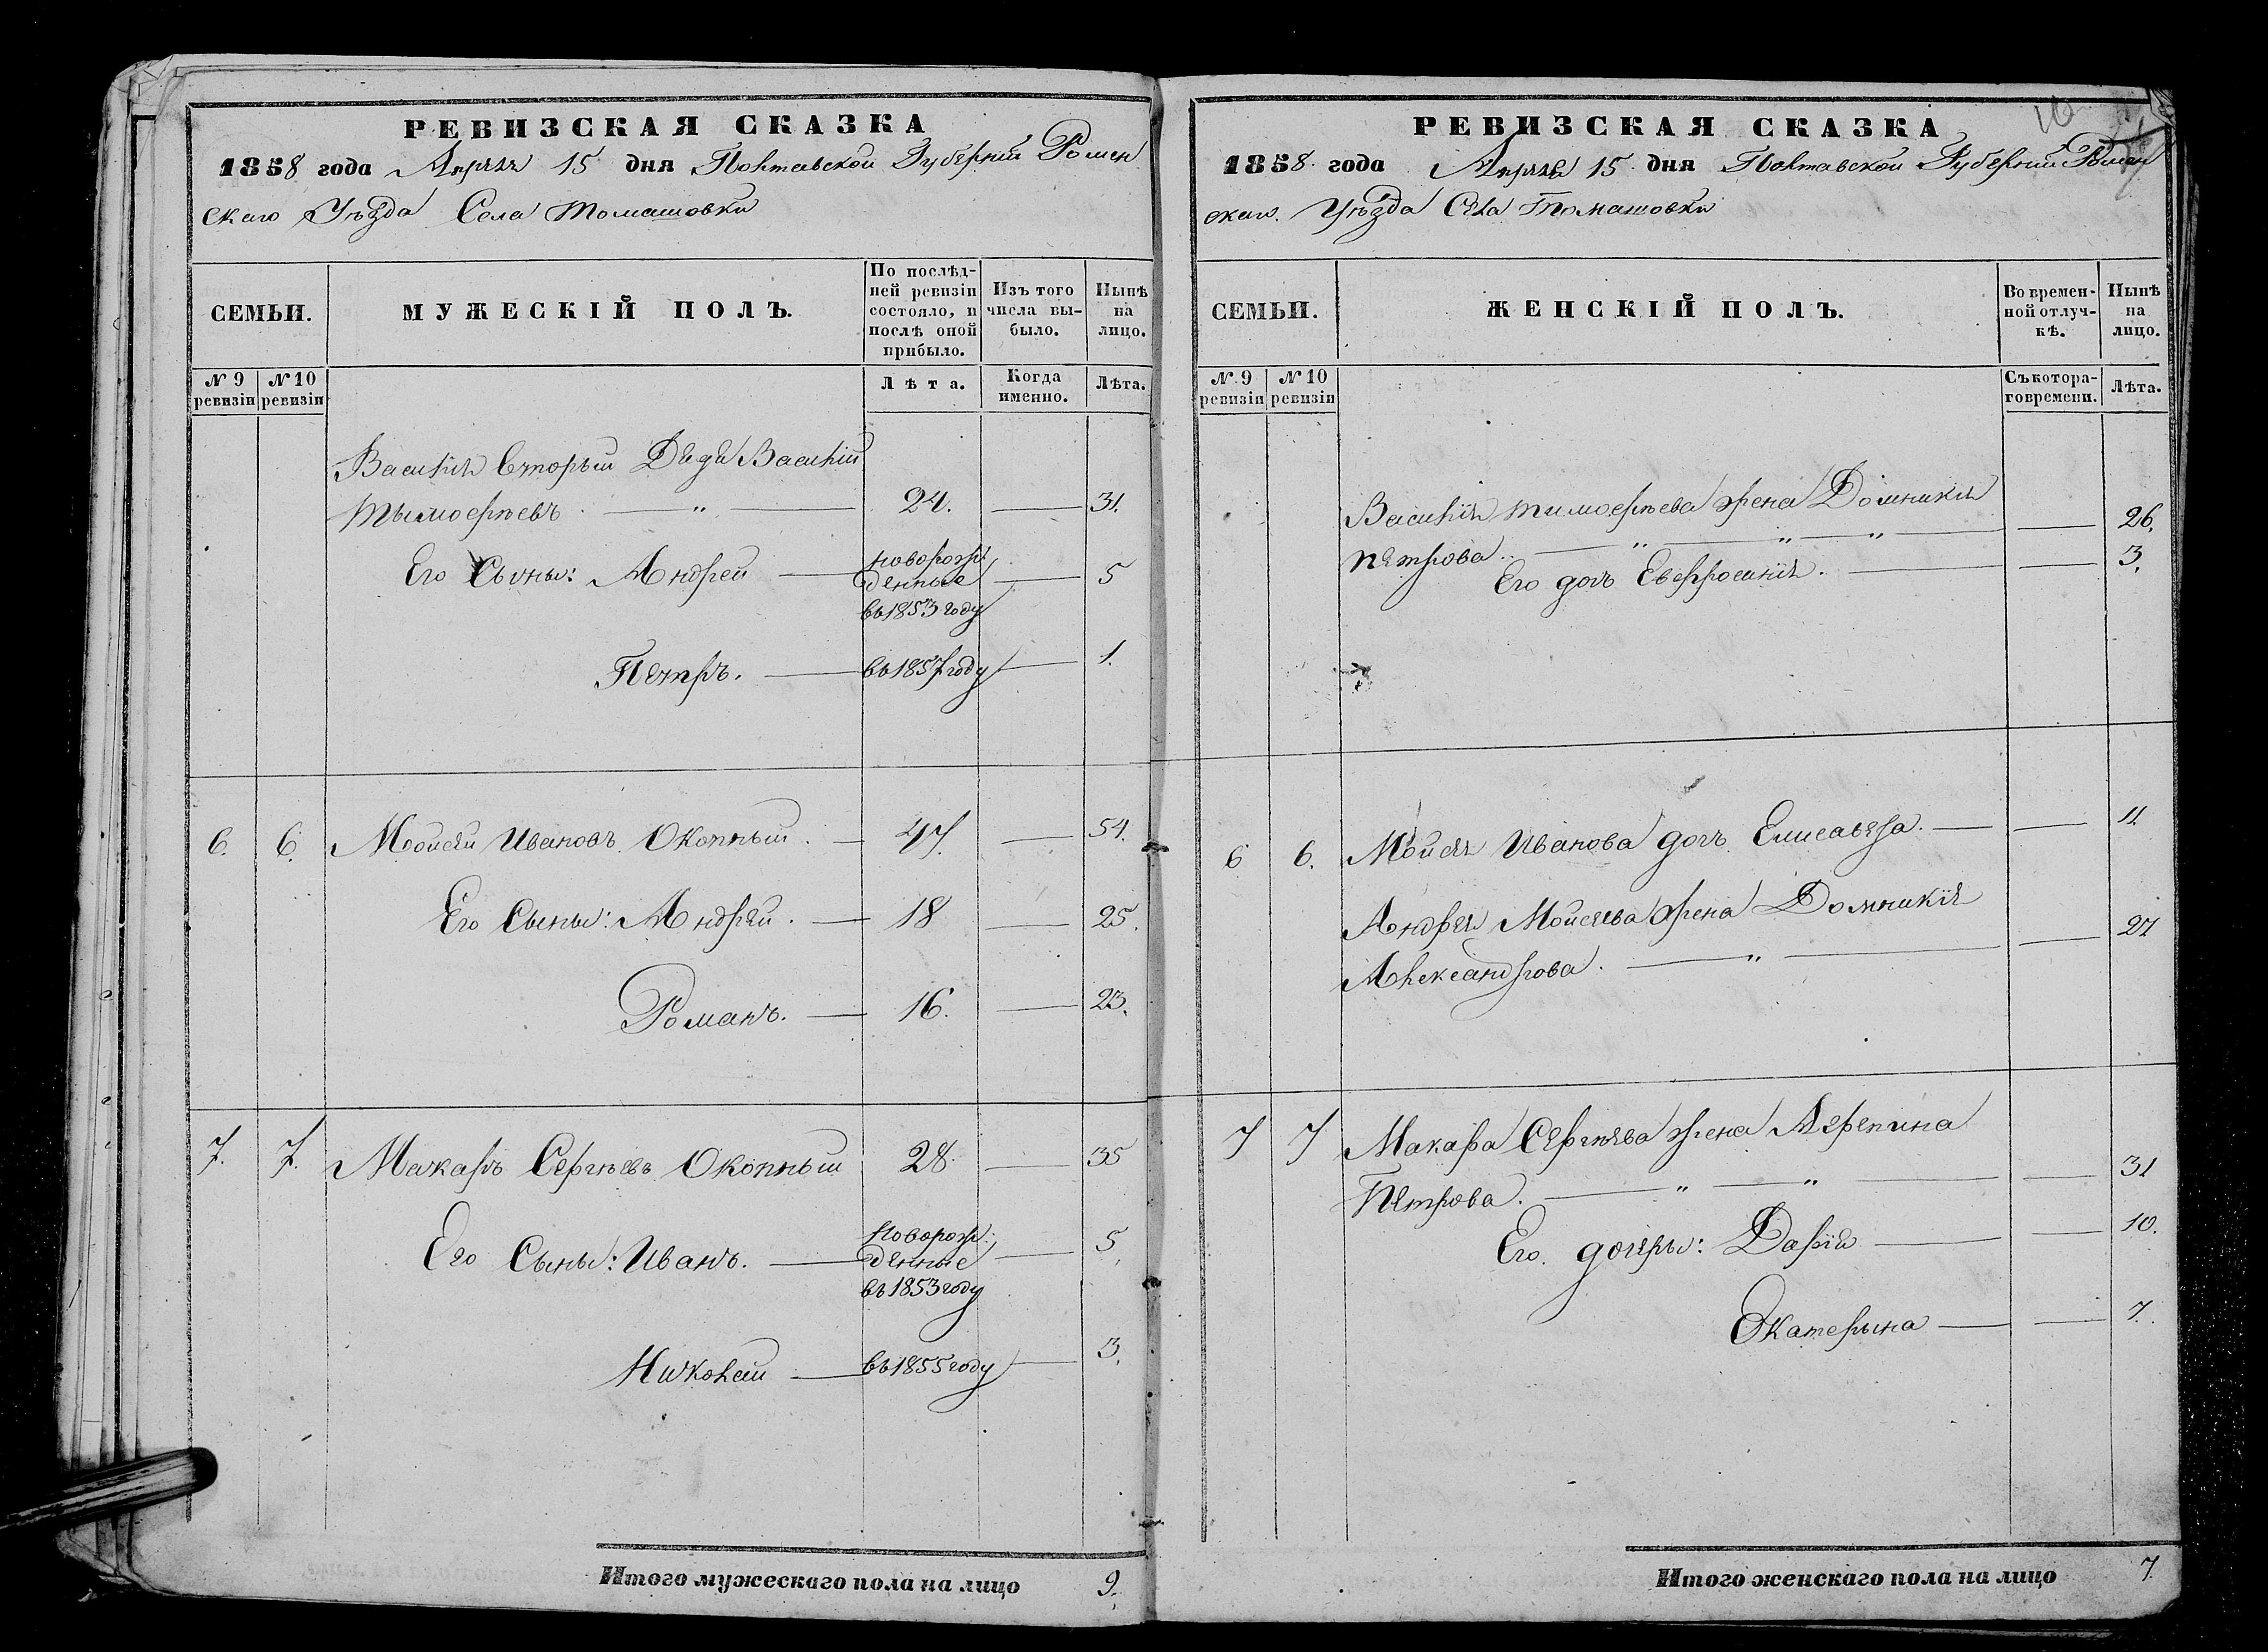 РЕВИЗСКАЯ СКАЗКА
1858 года Апреля 15 дня Полтавской Губерніи Ромен
скаго Уѣзда Села Томашовки
СЕМЬИ.
МУЖЕСКІЙ ПОЛЪ.
По послѣд-
ней ревизіи
состояло, и
послѣ оной
прибыло.
Изъ того
числа вы-
было.
Нынѣ
на
лицо.
№ 9
ревизіи
№ 10
ревизіи
Лѣта.
Когда
именно.
Лѣта.
Василія Вторый Дядя Василій
Тымоѳѣевъ 24. 31.
Его Сыны: Андрей новорож-
денные
въ 1853 году 5
Петръ. въ 1857 году 1.
6. 6. Моисей Ивановъ Окопный. 47. 54.
Его Сыны: Андрей. 18 25.
Романъ. 16. 23.
7. 7. Макаръ Сергѣевъ Окопный 28. 35
Его Сыны: Иванъ. Новорож-
денные
въ 1853 году 5
Николай въ 1855 году 3.
Итого мужескаго пола на лицо 9.
РЕВИЗСКАЯ СКАЗКА
1858. года Апреля 15. дня Полтавской Губерніи Ромен
скаго. Уѣзда Села Томашовки
СЕМЬИ.
ЖЕНСКІЙ ПОЛЪ.
Во времен-
ной отлуч-
кѣ.
Нынѣ
на
лицо.
№ 9
ревизіи
№ 10
ревизіи
Съ котора-
го времени.
Лѣта.
Василія Тимоѳѣева жена Домникія
Петрова. 26.
Его дочь Евфросинія. 3.
6 6. Мойсея Иванова дочь Елисавета. 11.
Андрея Мойсеева жена Домникія
Александрова. 27
7 7 Макара Сергѣева жена
Петрова. 31
Его. дочери: Дарія 10.
Екатерына 7.
Итого женскаго пола на лицо 7.